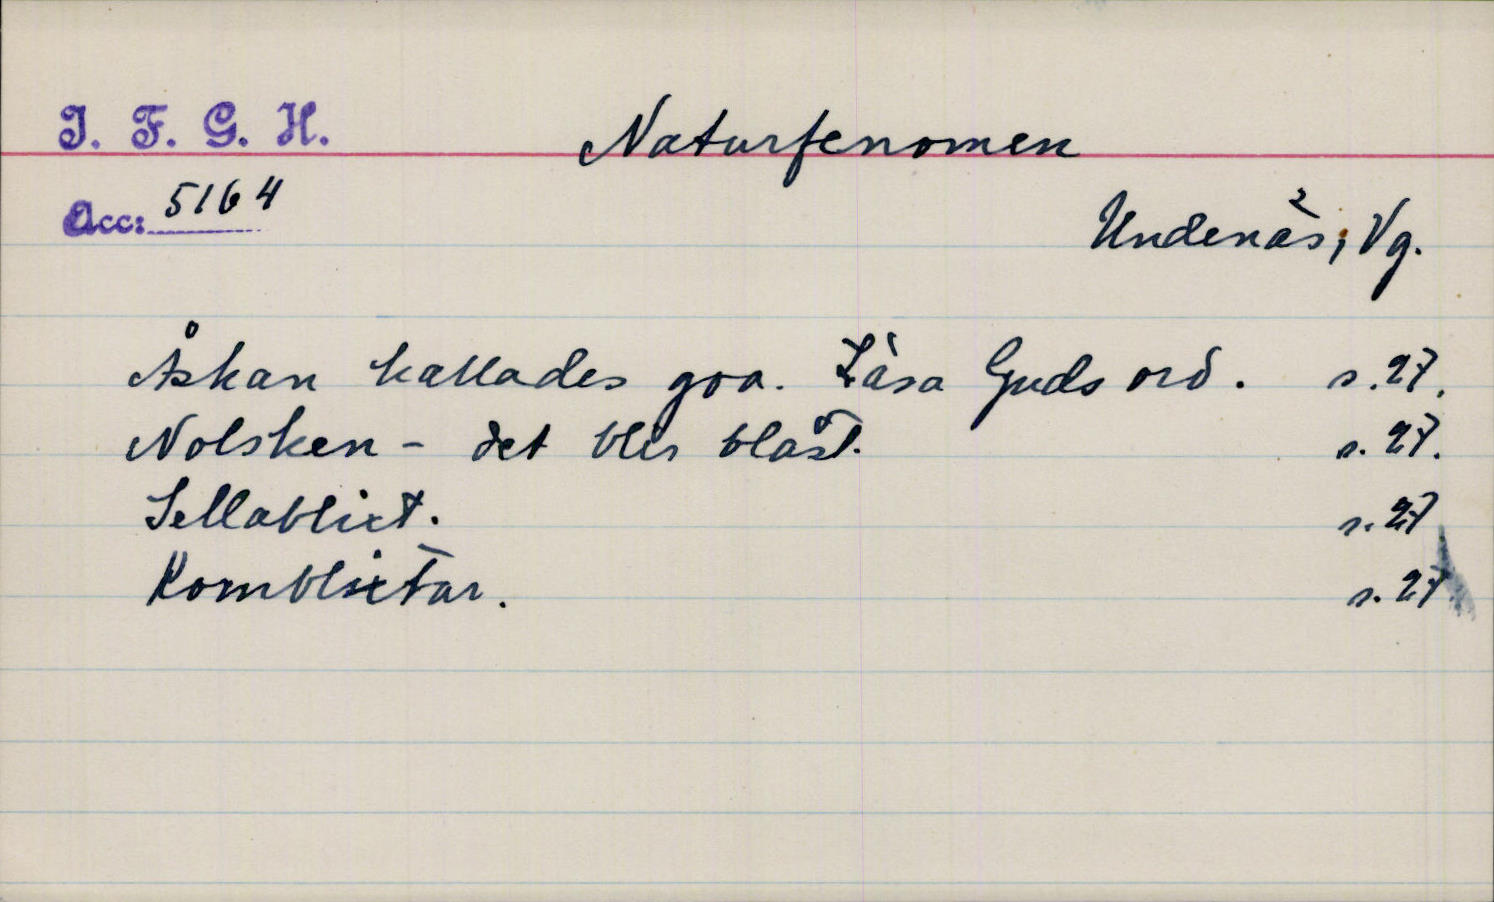 I. F. G. H.
Naturfenomen
Acc: 5164
Undenäs, Vg.
Åskan kallades goa. Läsa Guds ord. s. 27.
Nolsken - det blir blåst. s. 27.
Sellablixt. s. 27
Kornblixtar. s. 27